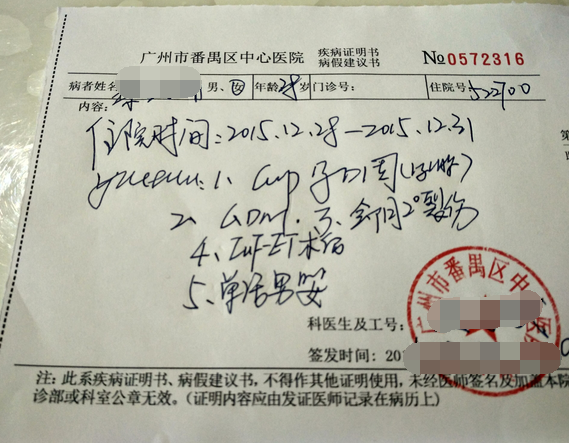 广州市番禺区中心医院 疾病证明书 病假建议书 No0572316
病者姓名 男、女 年龄28岁 门诊号: 住院号522700
内容:
住院时间:2015.12.28—2015.12.31
1、 孕 周
2、GDM. 3、会阴2°裂伤
4、IVF-ET术后
5、单活男婴
科医生及工号:
签发时间:201
注:此系疾病证明书、病假建议书,不得作其他证明使用,未经医师签名及加盖本院
诊部或科室公章无效。(证明内容应由发证医师记录在病历上)
广州市番禺区中 医